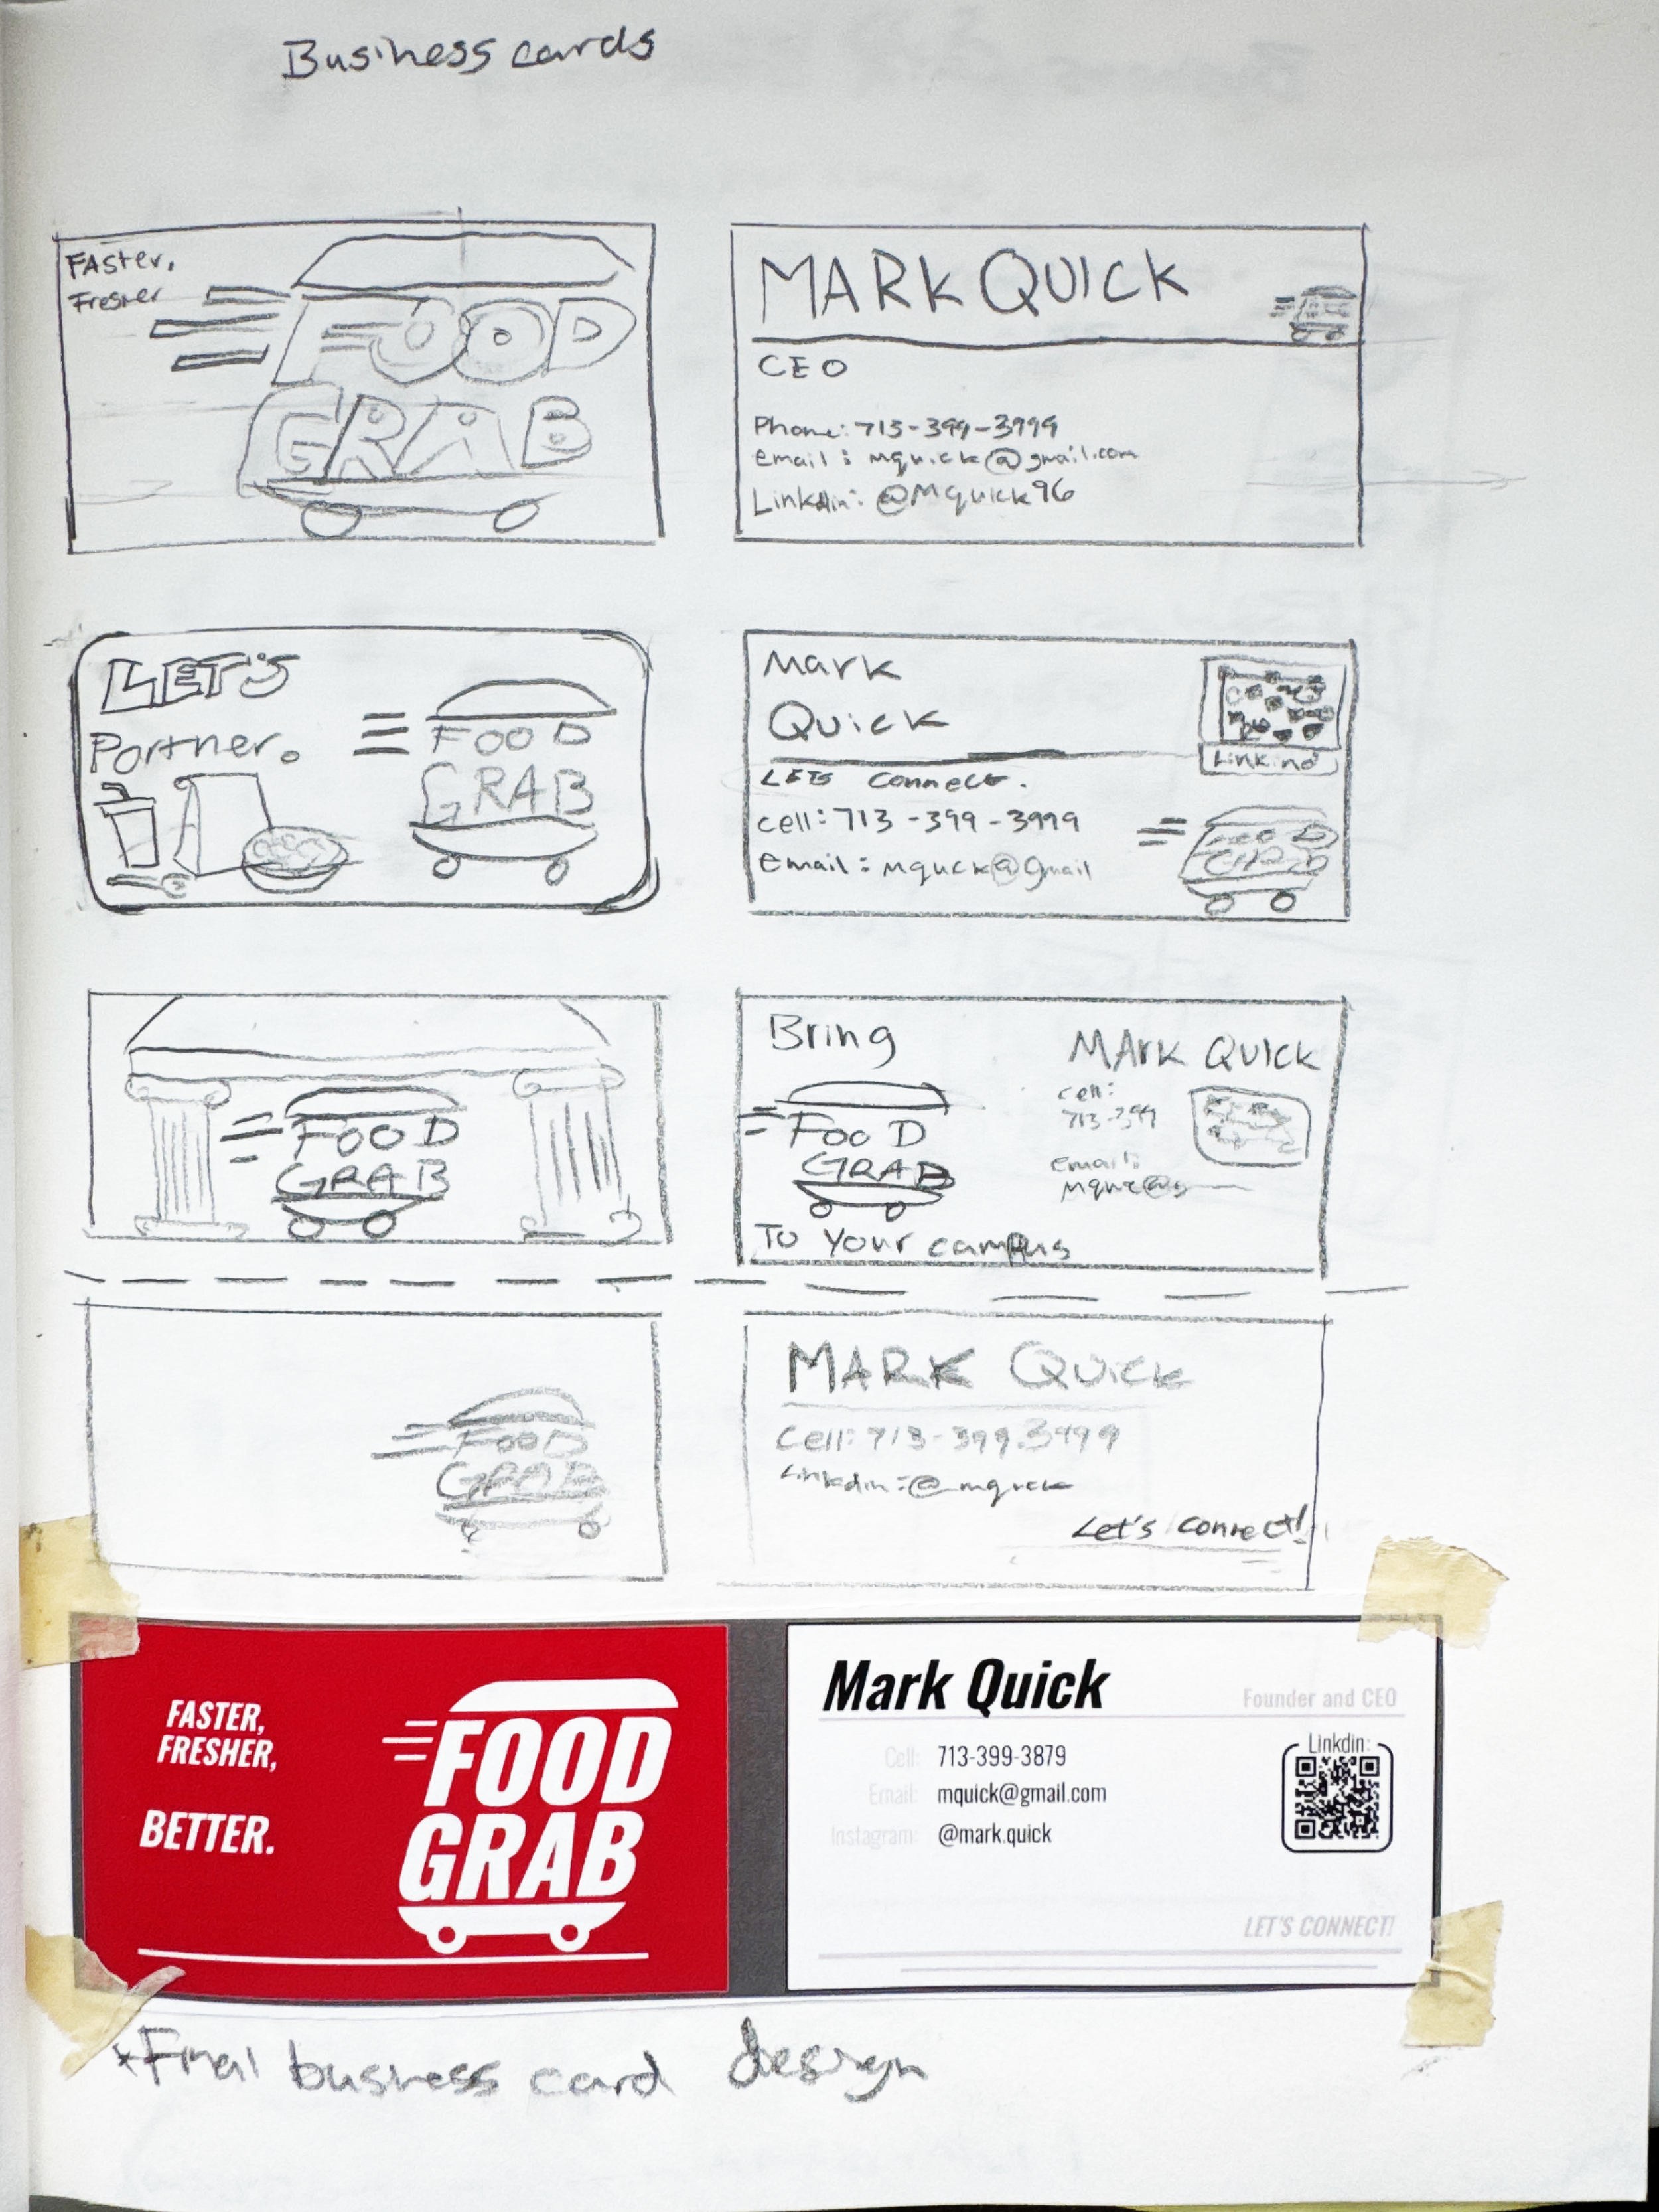 Business cards
FASTer,
Fresher
FOOD
GRAB
MARK QUICK
CEO
Phone: 713-399-3999
email: mquick@gmail.com
@Mquick96
LET'S
Partner.
FOOD
GRAB
Mark
Quick
LETS connect.
cell: 713-399-3999
Email: mquck@gmail
FOOD
GRAB
FOOD
GRAB
Bring
FOOD
GRAB
To Your campus
MArk QUICK
cell:
713-399
email:
FOOD
GRAB
MARK QUICK
Cell: 713-399.3999
Linkdin: @mquick
Let's connect!
FASTER,
FRESHER,
BETTER.
FOOD
GRAB
Mark Quick
Founder and CEO
Cell: 713-399-3879
Email: mquick@gmail.com
Instagram: @mark.quick
Linkdin:
LET'S CONNECT!
*Final business card design